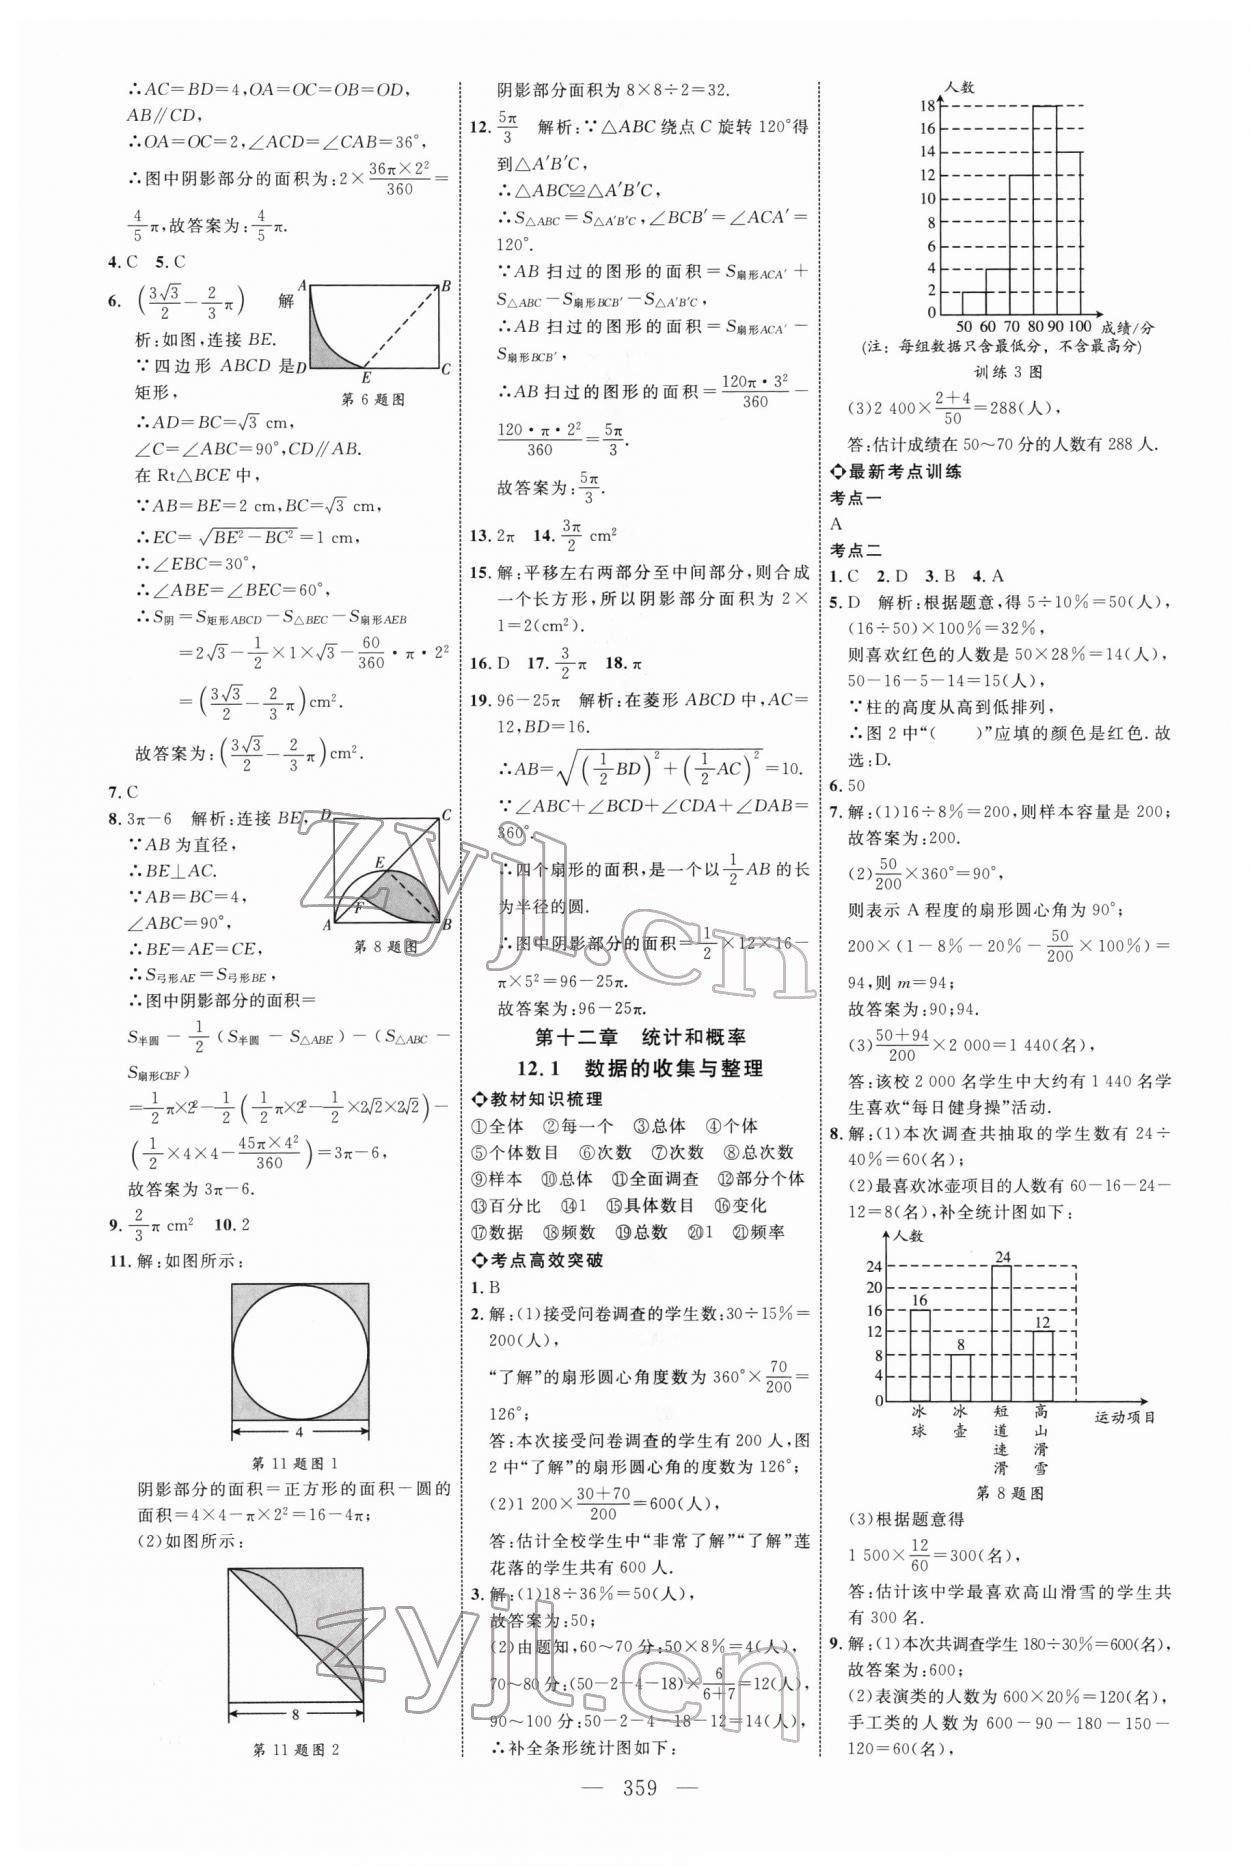 ∴AC=BD=4,OA=OC=OB=OD,
AB∥CD,
∴OA=OC=2,∠ACD=∠CAB=36°,
∴图中阴影部分的面积为:2×36π×2²/360=
4/5π,故答案为:4/5π.
4.C 5.C
6.(3√3/2-2/3π) 解
析:如图,连接 BE.
∵四边形 ABCD 是
矩形,
A B D E C
第 6 题图
∴AD=BC=√3 cm,
∠C=∠ABC=90°,CD∥AB.
在 Rt△BCE 中,
∵AB=BE=2 cm,BC=√3 cm,
∴EC=√(BE²-BC²)=1 cm,
∴∠EBC=30°,
∴∠ABE=∠BEC=60°,
∴S阴=S矩形ABCD-S△BEC-S扇形AEB
=2√3-1/2×1×√3-60/360·π·2²
=(3√3/2-2/3π)cm².
故答案为:(3√3/2-2/3π)cm².
7.C
8.3π-6 解析:连接 BE,
∵AB 为直径,
∴BE⊥AC.
∵AB=BC=4,
∠ABC=90°,
∴BE=AE=CE,
D C E F A B
第 8 题图
∴S弓形AE=S弓形BE,
∴图中阴影部分的面积=
S半圆-1/2(S半圆-S△ABE)-(S△ABC-
S扇形CBF)
=1/2π×2²-1/2(1/2π×2²-1/2×2√2×2√2)-
(1/2×4×4-45π×4²/360)=3π-6,
故答案为 3π-6.
9.2/3π cm² 10.2
11.解:如图所示:
4
第 11 题图 1
阴影部分的面积=正方形的面积-圆的
面积=4×4-π×2²=16-4π;
(2)如图所示:
8
第 11 题图 2
阴影部分面积为 8×8÷2=32.
12.5π/3 解析:∵△ABC 绕点 C 旋转 120°得
到△A′B′C,
∴△ABC≌△A′B′C,
∴S△ABC=S△A′B′C,∠BCB′=∠ACA′=
120°.
∵AB 扫过的图形的面积=S扇形ACA′+
S△ABC-S扇形BCB′-S△A′B′C,
∴AB 扫过的图形的面积=S扇形ACA′-
S扇形BCB′,
∴AB 扫过的图形的面积=120π·3²/360-
120·π·2²/360=5π/3.
故答案为:5π/3.
13.2π 14.3π/2 cm²
15.解:平移左右两部分至中间部分,则合成
一个长方形,所以阴影部分面积为 2×
1=2(cm²).
16.D 17.3/2π 18.π
19.96-25π 解析:在菱形 ABCD 中,AC=
12,BD=16.
∴AB=√((1/2BD)²+(1/2AC)²)=10.
∵∠ABC+∠BCD+∠CDA+∠DAB=
360°.
∴四个扇形的面积,是一个以1/2AB 的长
为半径的圆.
∴图中阴影部分的面积=1/2×12×16-
π×5²=96-25π.
故答案为:96-25π.
第十二章 统计和概率
12.1 数据的收集与整理
教材知识梳理
①全体 ②每一个 ③总体 ④个体
⑤个体数目 ⑥次数 ⑦次数 ⑧总次数
⑨样本 ⑩总体 ⑪全面调查 ⑫部分个体
⑬百分比 ⑭1 ⑮具体数目 ⑯变化
⑰数据 ⑱频数 ⑲总数 ⑳1 ㉑频率
考点高效突破
1.B
2.解:(1)接受问卷调查的学生数:30÷15%=
200(人),
“了解”的扇形圆心角度数为 360°×70/200=
126°;
答:本次接受问卷调查的学生有 200 人,图
2 中“了解”的扇形圆心角的度数为 126°;
(2)1 200×30+70/200=600(人),
答:估计全校学生中“非常了解”“了解”莲
花落的学生共有 600 人.
3.解:(1)18÷36%=50(人),
故答案为:50;
(2)由题知,60~70 分:50×8%=4(人),
70~80 分:(50-2-4-18)×6/6+7=12(人),
90~100 分:50-2-4-18-12=14(人),
∴补全条形统计图如下:
人数
18
16
14
12
10
8
6
4
2
0
50 60 70 80 90 100 成绩/分
(注：每组数据只含最低分，不含最高分)
训练 3 图
(3)2 400×2+4/50=288(人),
答:估计成绩在 50~70 分的人数有 288 人.
最新考点训练
考点一
A
考点二
1.C 2.D 3.B 4.A
5.D 解析:根据题意,得 5÷10%=50(人),
(16÷50)×100%=32%,
则喜欢红色的人数是 50×28%=14(人),
50-16-5-14=15(人),
∵柱的高度从高到低排列,
∴图 2 中“( )”应填的颜色是红色.故
选:D.
6.50
7.解:(1)16÷8%=200,则样本容量是 200;
故答案为:200.
(2)50/200×360°=90°,
则表示 A 程度的扇形圆心角为 90°;
200×(1-8%-20%-50/200×100%)=
94,则 m=94;
故答案为:90;94.
(3)50+94/200×2 000=1 440(人),
答:该校 2 000 名学生中大约有 1 440 名学
生喜欢“每日健身操”活动.
8.解:(1)本次调查共抽取的学生数有 24÷
40%=60(名);
(2)最喜欢冰壶项目的人数有 60-16-24-
12=8(名),补全统计图如下:
人数
24
20
16
12
8
4
0
16 8 24 12
冰球 冰壶 短道速滑 高山滑雪 运动项目
第 8 题图
(3)根据题意得
1 500×12/60=300(名),
答:估计该中学最喜欢高山滑雪的学生共
有 300 名.
9.解:(1)本次共调查学生 180÷30%=600(名),
故答案为:600;
(2)表演类的人数为 600×20%=120(名),
手工类的人数为 600-90-180-150-
120=60(名),
— 359 —
zyjl.cn
zyjl.cn